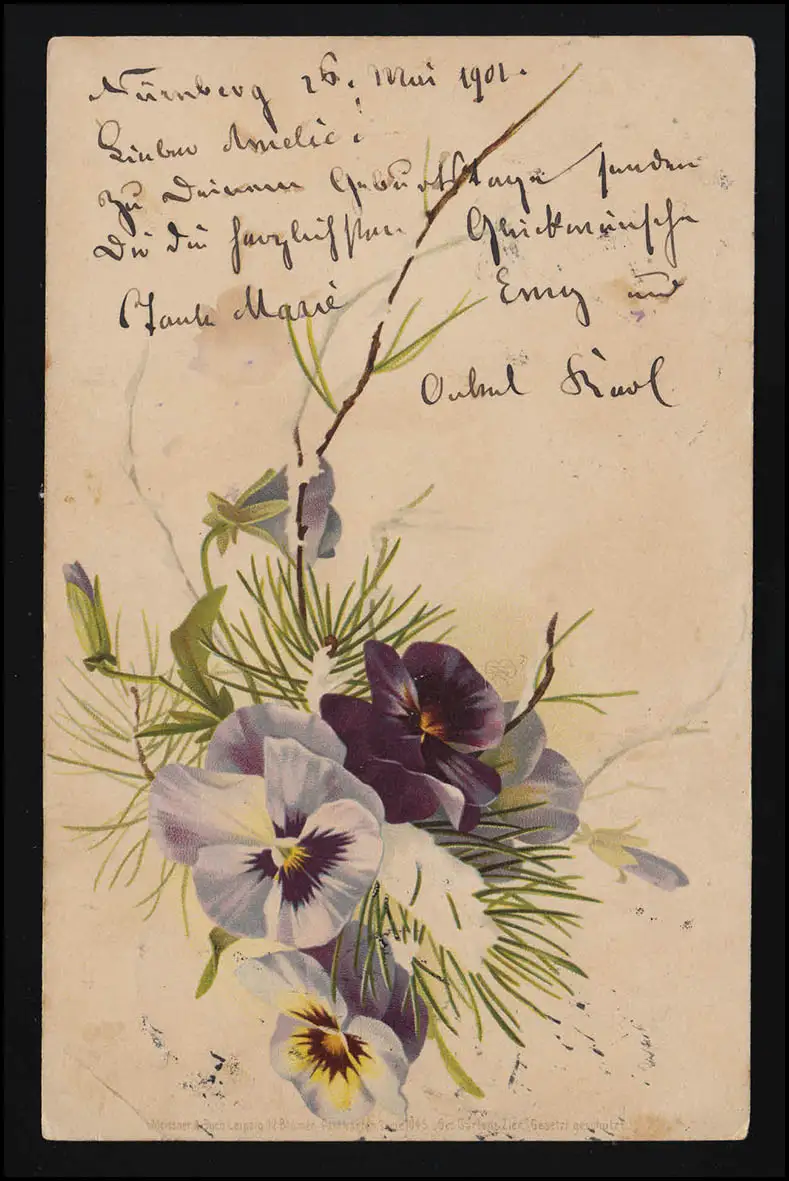 Nürnberg 26. Mai 1901.
Lieber Amelie!
Zu Deinem Geburtstage senden
Dir die herzlichsten Glückwünsche
Tante Marie Emy und
Onkel Karl
Meissner & Buch Leipzig 12 Blumen-Postkarten Serie 1045 „Des Gartens Zier“ Gesetzl. geschützt.